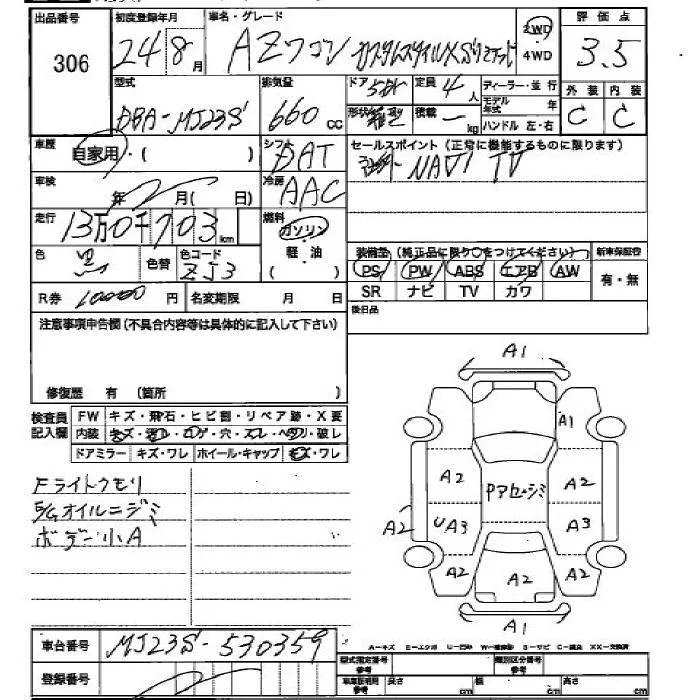 出品番号 初度登録年月 車名・グレード 2WD 評価点
306 24年8月 AZワゴン カスタムスタイルXS ・4WD 3.5
型式 排気量 ドア 5DR 定員 4人 ディーラー・並行 外装 内装
DBA-MJ23S 660cc 形状 箱型 積載 ー kg モデル年式 年 C C
ハンドル 左・右
車歴 自家用・( ) シフト DAT セールスポイント (正常に機能するものに限ります)
NAVI TV
車検 年 月( 日) 冷房 AAC
走行 13万0千703km 燃料 ガソリン
軽油
色 黒 色替 色コード ZJ3 装備型 (純正品に限り○をつけてください) 新車保証書
PS PW ABS エアB AW 有・無
R券 10000円 名変期限 月 日 SR ナビ TV カワ
後日品
注意事項申告欄(不具合内容等は具体的に記入して下さい)
修復歴 有 (箇所 )
検査員記入欄 FW キズ・飛石・ヒビ割・リペア跡・X要
内装 キズ・汚レ・コゲ・穴・スレ・ヘタリ・破レ
ドアミラー キズ・ワレ ホイール・キャップ キズ・ワレ
Fライトクモリ
E/Gオイルニジミ
ボデー小A
A1
A1
A2 PアセージミA2
A2 UA3 A3
A2 A2 A2
A1
車台番号 MJ23S-530359
登録番号
A-キズ E-エクボ U-凹ミ W-補修跡 S-サビ C-腐食 XX-交換済
型式指定番号 類別区分番号
車庫証明用参考 長さ cm 幅 cm 高さ参考 cm